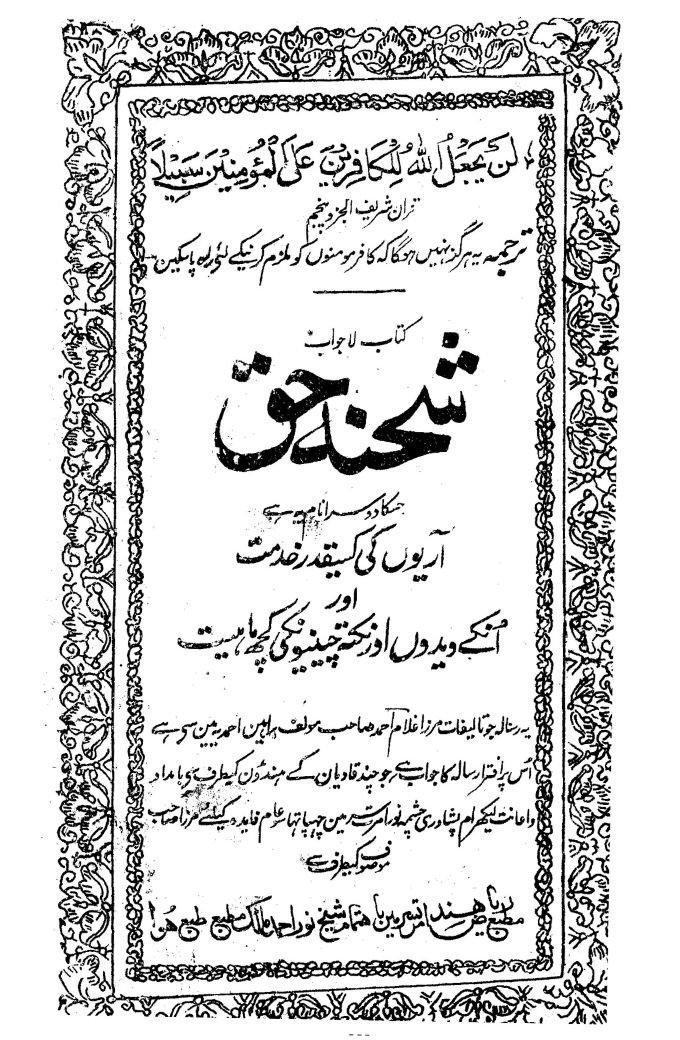 لَنْ یَّجْعَلَ اللّٰہُ لِلْکَافِرِیْنَ عَلَی الْمُؤْمِنِیْنَ سَبِیْلًا
قران شریف الجزو پنجم
ترجمہ یہ ہرگز نہیں ہوگا کہ کافر مومنوں کو ملزم کرنیکے لئی راہ پاسکین
کتاب لاجواب
شحنہ حق
جسکا دوسرا نام یہ ہے
آریوں کی کسیقدر خدمت
اور
اُنکے ویدوں اور نکتہ چینیونکی کچھ ماہیت
یہ رسالہ جو تالیفات مرزا غلام احمد صاحب مولف براہین احمدیہ مین سی ہے
اُس پرافترا رسالہ کا جواب ہے جو چند قادیان کے ہندؤن کیطرف سی بامداد
واعانت لیکھرام پشاوری چشمہ نور امرتسر مین چھپا تھا سو عام فایدہ کیلئے مرزا صاحب
موصوف کیطرف سے
مطبع ریاض ہند امرتسر مین باہتمام شیخ نور احمد مالک مطبع طبع ہوا